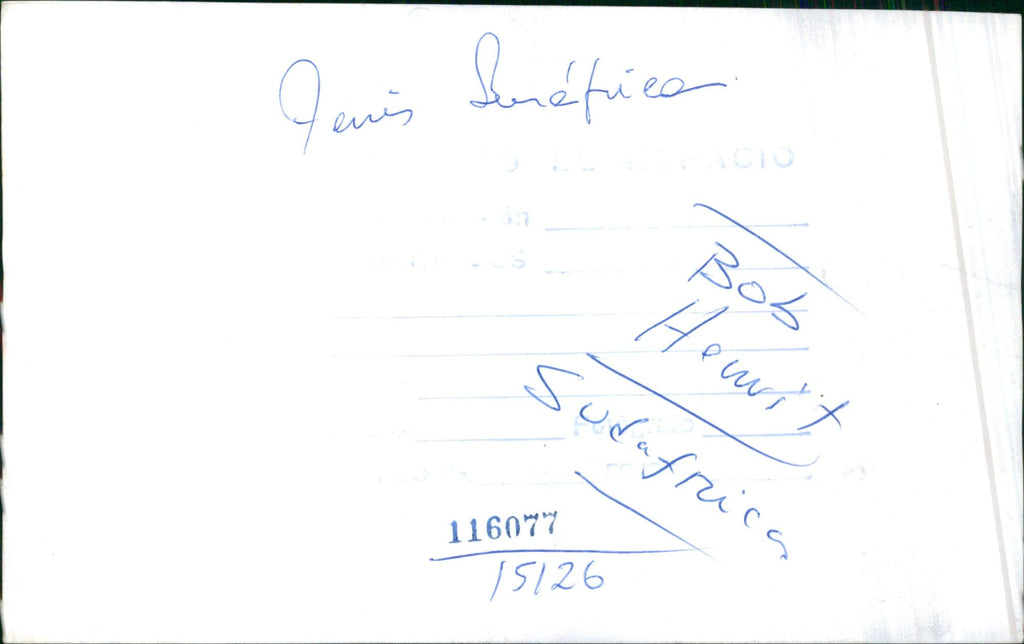 Tenis Suráfrica
EL ESPACIO
Bob
Hewit
Surafrica
116077
15126